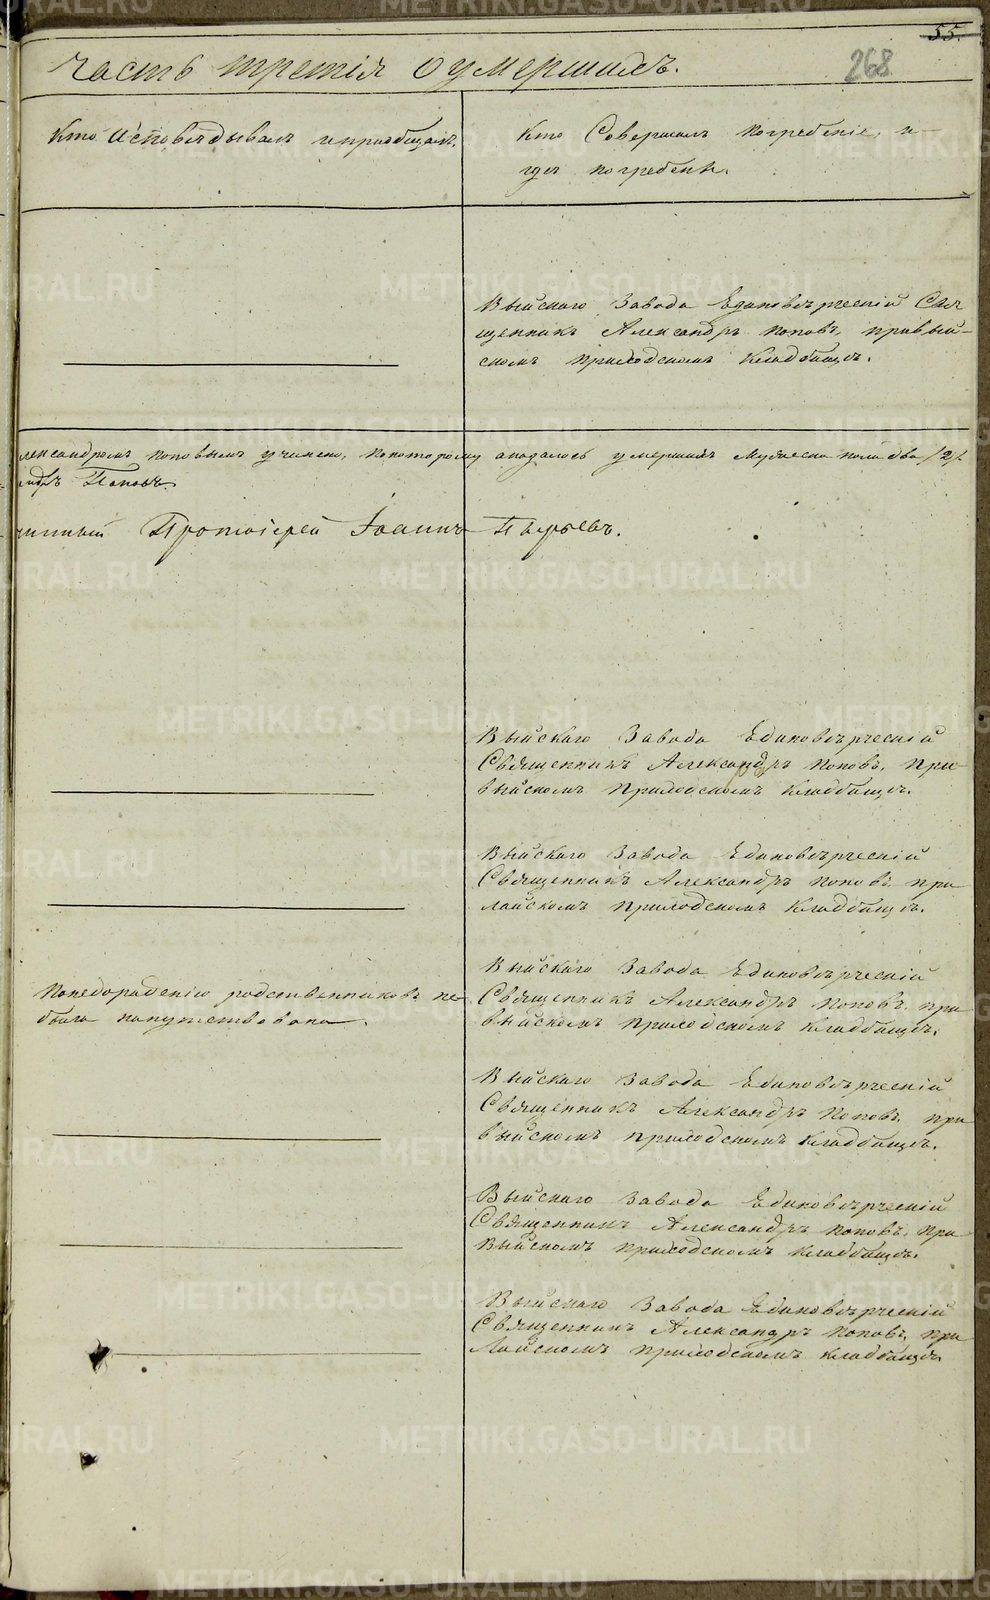 55.
268
Часть третія о умершихъ.
Кто Исповѣдывалъ и приобщалъ.
Кто Совершалъ погребеніе, и
гдѣ погребены.
Выйскаго Завода Единовѣрческій Свя
щенникъ Александръ Поповъ, при вый-
скомъ приходскомъ Кладбищѣ.
лександромъ Поповымъ учинено, по которому оказалось умершихъ Мужеска пола два /2/.
андръ Поповъ.
чинный Протоіерей Іоаннъ Пырьевъ.
Выйскаго Завода Единовѣрческій
Священникъ Александръ Поповъ, при
выйскомъ приходскомъ кладбищѣ.
Выйскаго Завода Единовѣрческій
Священникъ Александръ Поповъ, при
лайскомъ приходскомъ Кладбищѣ.
По нерадѣнію родственниковъ не
была напутствована.
Выйскаго Завода Единовѣрческій
Священникъ Александръ Поповъ, при
выйскомъ приходскомъ Кладбищѣ.
Выйскаго Завода Единовѣрческій
Священникъ Александръ Поповъ, при
выйскомъ приходскомъ Кладбищѣ.
Выйскаго Завода Единовѣрческій
Священникъ Александръ Поповъ, при
Выйскомъ приходскомъ Кладбищѣ.
Выйскаго Завода Единовѣрческій
Священникъ Александръ Поповъ, при
Лайскомъ приходскомъ кладбищѣ.
METRIKI.GASO-URAL.RU